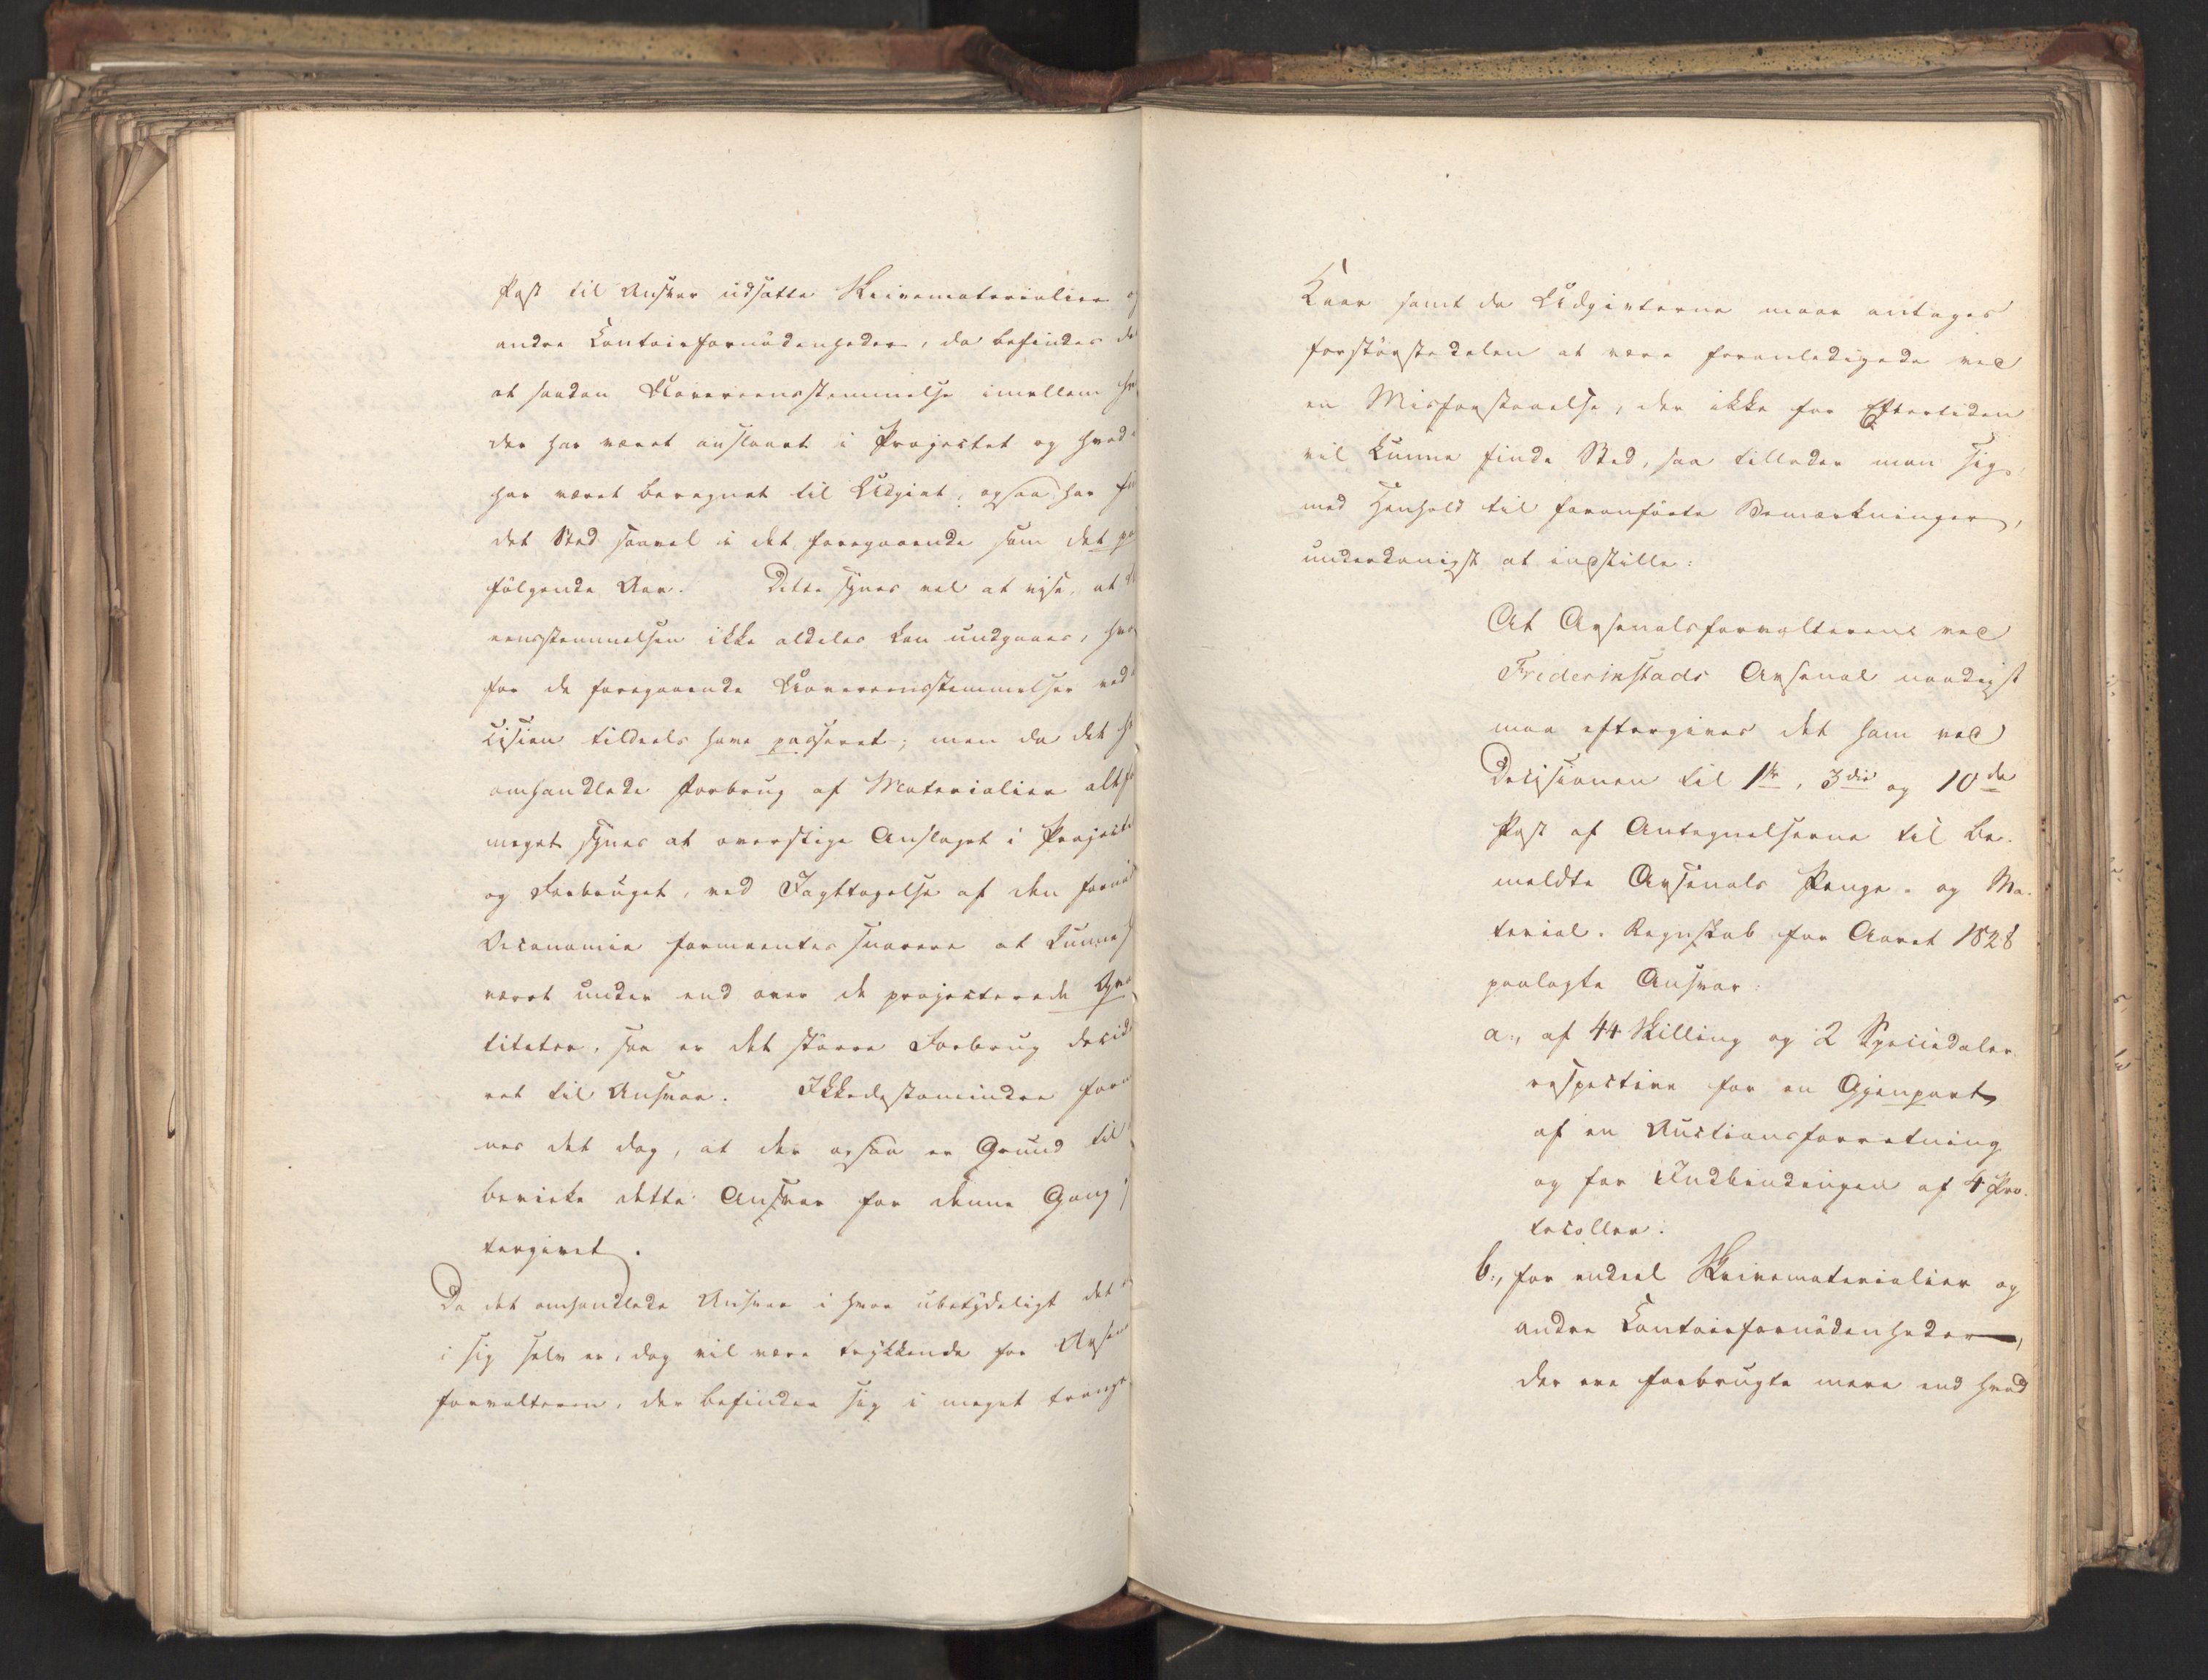 Post til Ansvar udsatte Skrivematerialier og
andre Contoirfornødenheder, da befindes de
at saadan Uovereensstemmelse imellem hv
der har været anslaaet i Projectet og hvad
har været beregnet til Udgivt, ogsaa har fu
det Sted saavel i det foregaaende som det pa
følgende Aar. Dette synes vel at vise, at
eensstemmelsen ikke aldeles kan undgaaes, hvor
for de foregaaende Uovereensstemmelser ved
cision tildeels have passeret; men da det h
omhandlede Forbrug af Materialier altfor
meget synes at overstige Anslaget i Project
og Forbruget, ved Iagttagelse af den fornød
Oeconomie formeentes snarere at kunne
været under end over de projecterede Qvan
titeter, saa er det større Forbrug decide
ret til Ansvar. Ikkedestomindre form
nes det dog, at der ogsaa er Grund til
bevirke dette Ansvar for denne Gang
tergivet.
Da det omhandlede Ansvar i hvor ubetydeligt det
i sig selv er, dog vil være trykkende for Arsen
forvalteren, der befinder sig i meget trange
Kaar samt da Udgivterne maae antages
forstørstedelen at være foranledigede ved
en Misforstaaelse, der ikke for Eftertiden
vil kunne finde Sted, saa tillader man sig,
med Henhold til foranførte Bemærkninger,
underdanigst at indstille:
At Arsenalsforvalteren ved
Friderikstads Arsenal naadigst
maa eftergives det ham ved
Decisionen til 1ste, 3die og 10de
Post af Antegnelserne til be-
meldte Arsenals Penge- og Ma-
terial-Regnskab for Aaret 1828
paalagte Ansvar:
a., af 44 Skilling og 2 Speciedaler
respective for en Gjenpart
af en Auctionsforretning
og for Indbindingen af 4 Pro-
tocoller.
b., for endeel Skrivematerialier og
andre Contoirfornødenheder,
der ere forbrugte mere end hvad